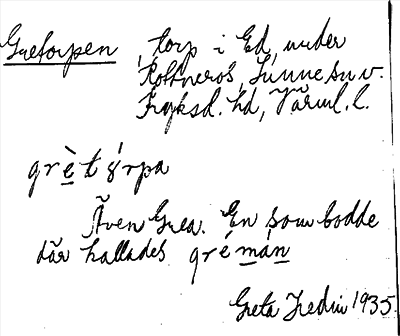 Gretorpen, torp i Ed, under
Rottneros, Sunne sn v.
Fryksd. hd, Värml. l.
grètȣ́rpa
Även Grea. En som bodde
där kallades grémàn
Greta Hedin 1935.